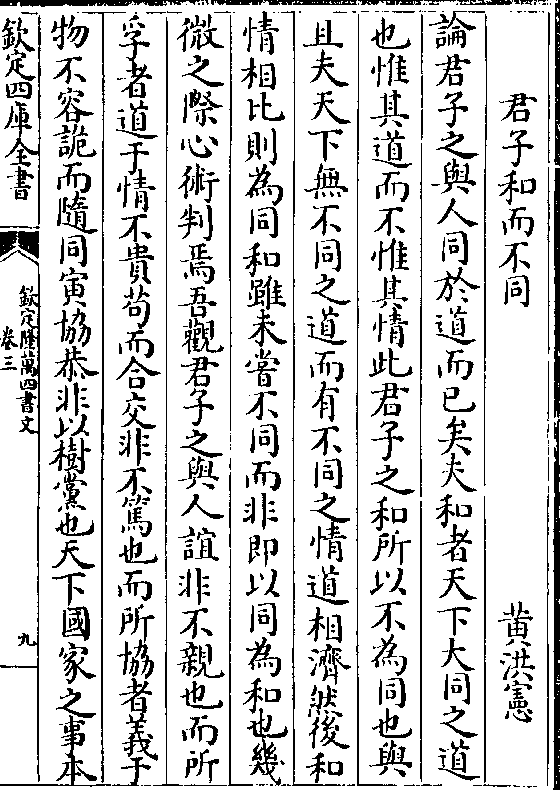 君子和而不同　黄洪憲
論君子之與人同於道而已矣夫和者天下大同之道
也惟其道而不惟其情此君子之和所以不為同也與
且夫天下無不同之道而有不同之情道相濟然後和
情相比則為同和雖未嘗不同而非即以同為和也幾
微之際心術判焉吾觀君子之與人誼非不親也而所
孚者道于情不貴苟而合交非不篤也而所協者義于
物不容詭而隨同寅協恭非以樹黨也天下國家之事本
欽定四庫全書
欽定隆萬四書文
卷三
九